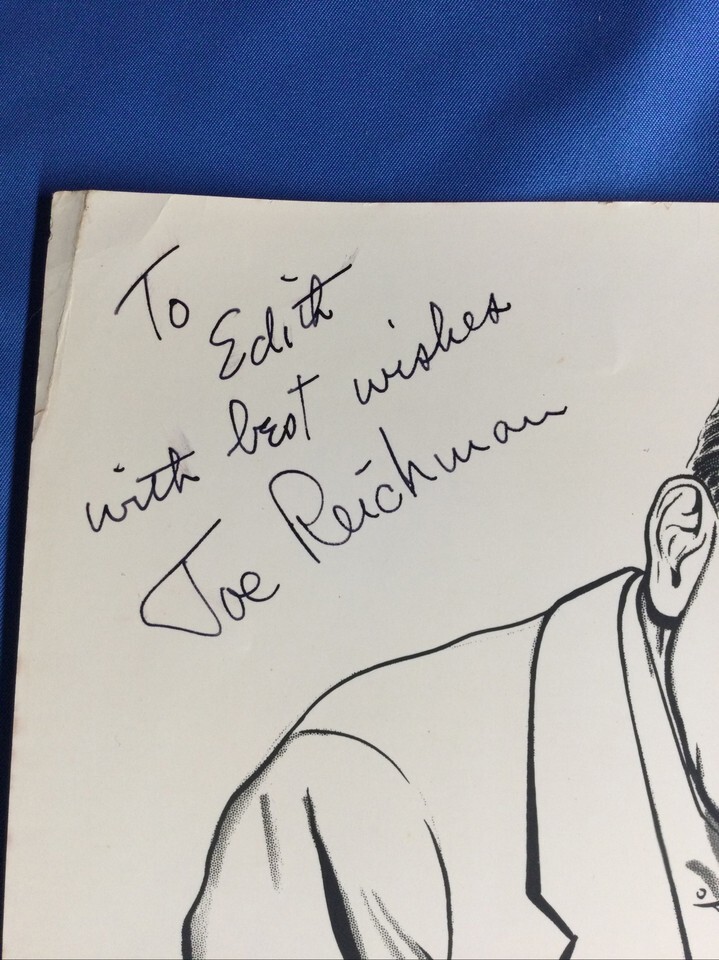 To
Edith
with best wishes
Joe Reichman